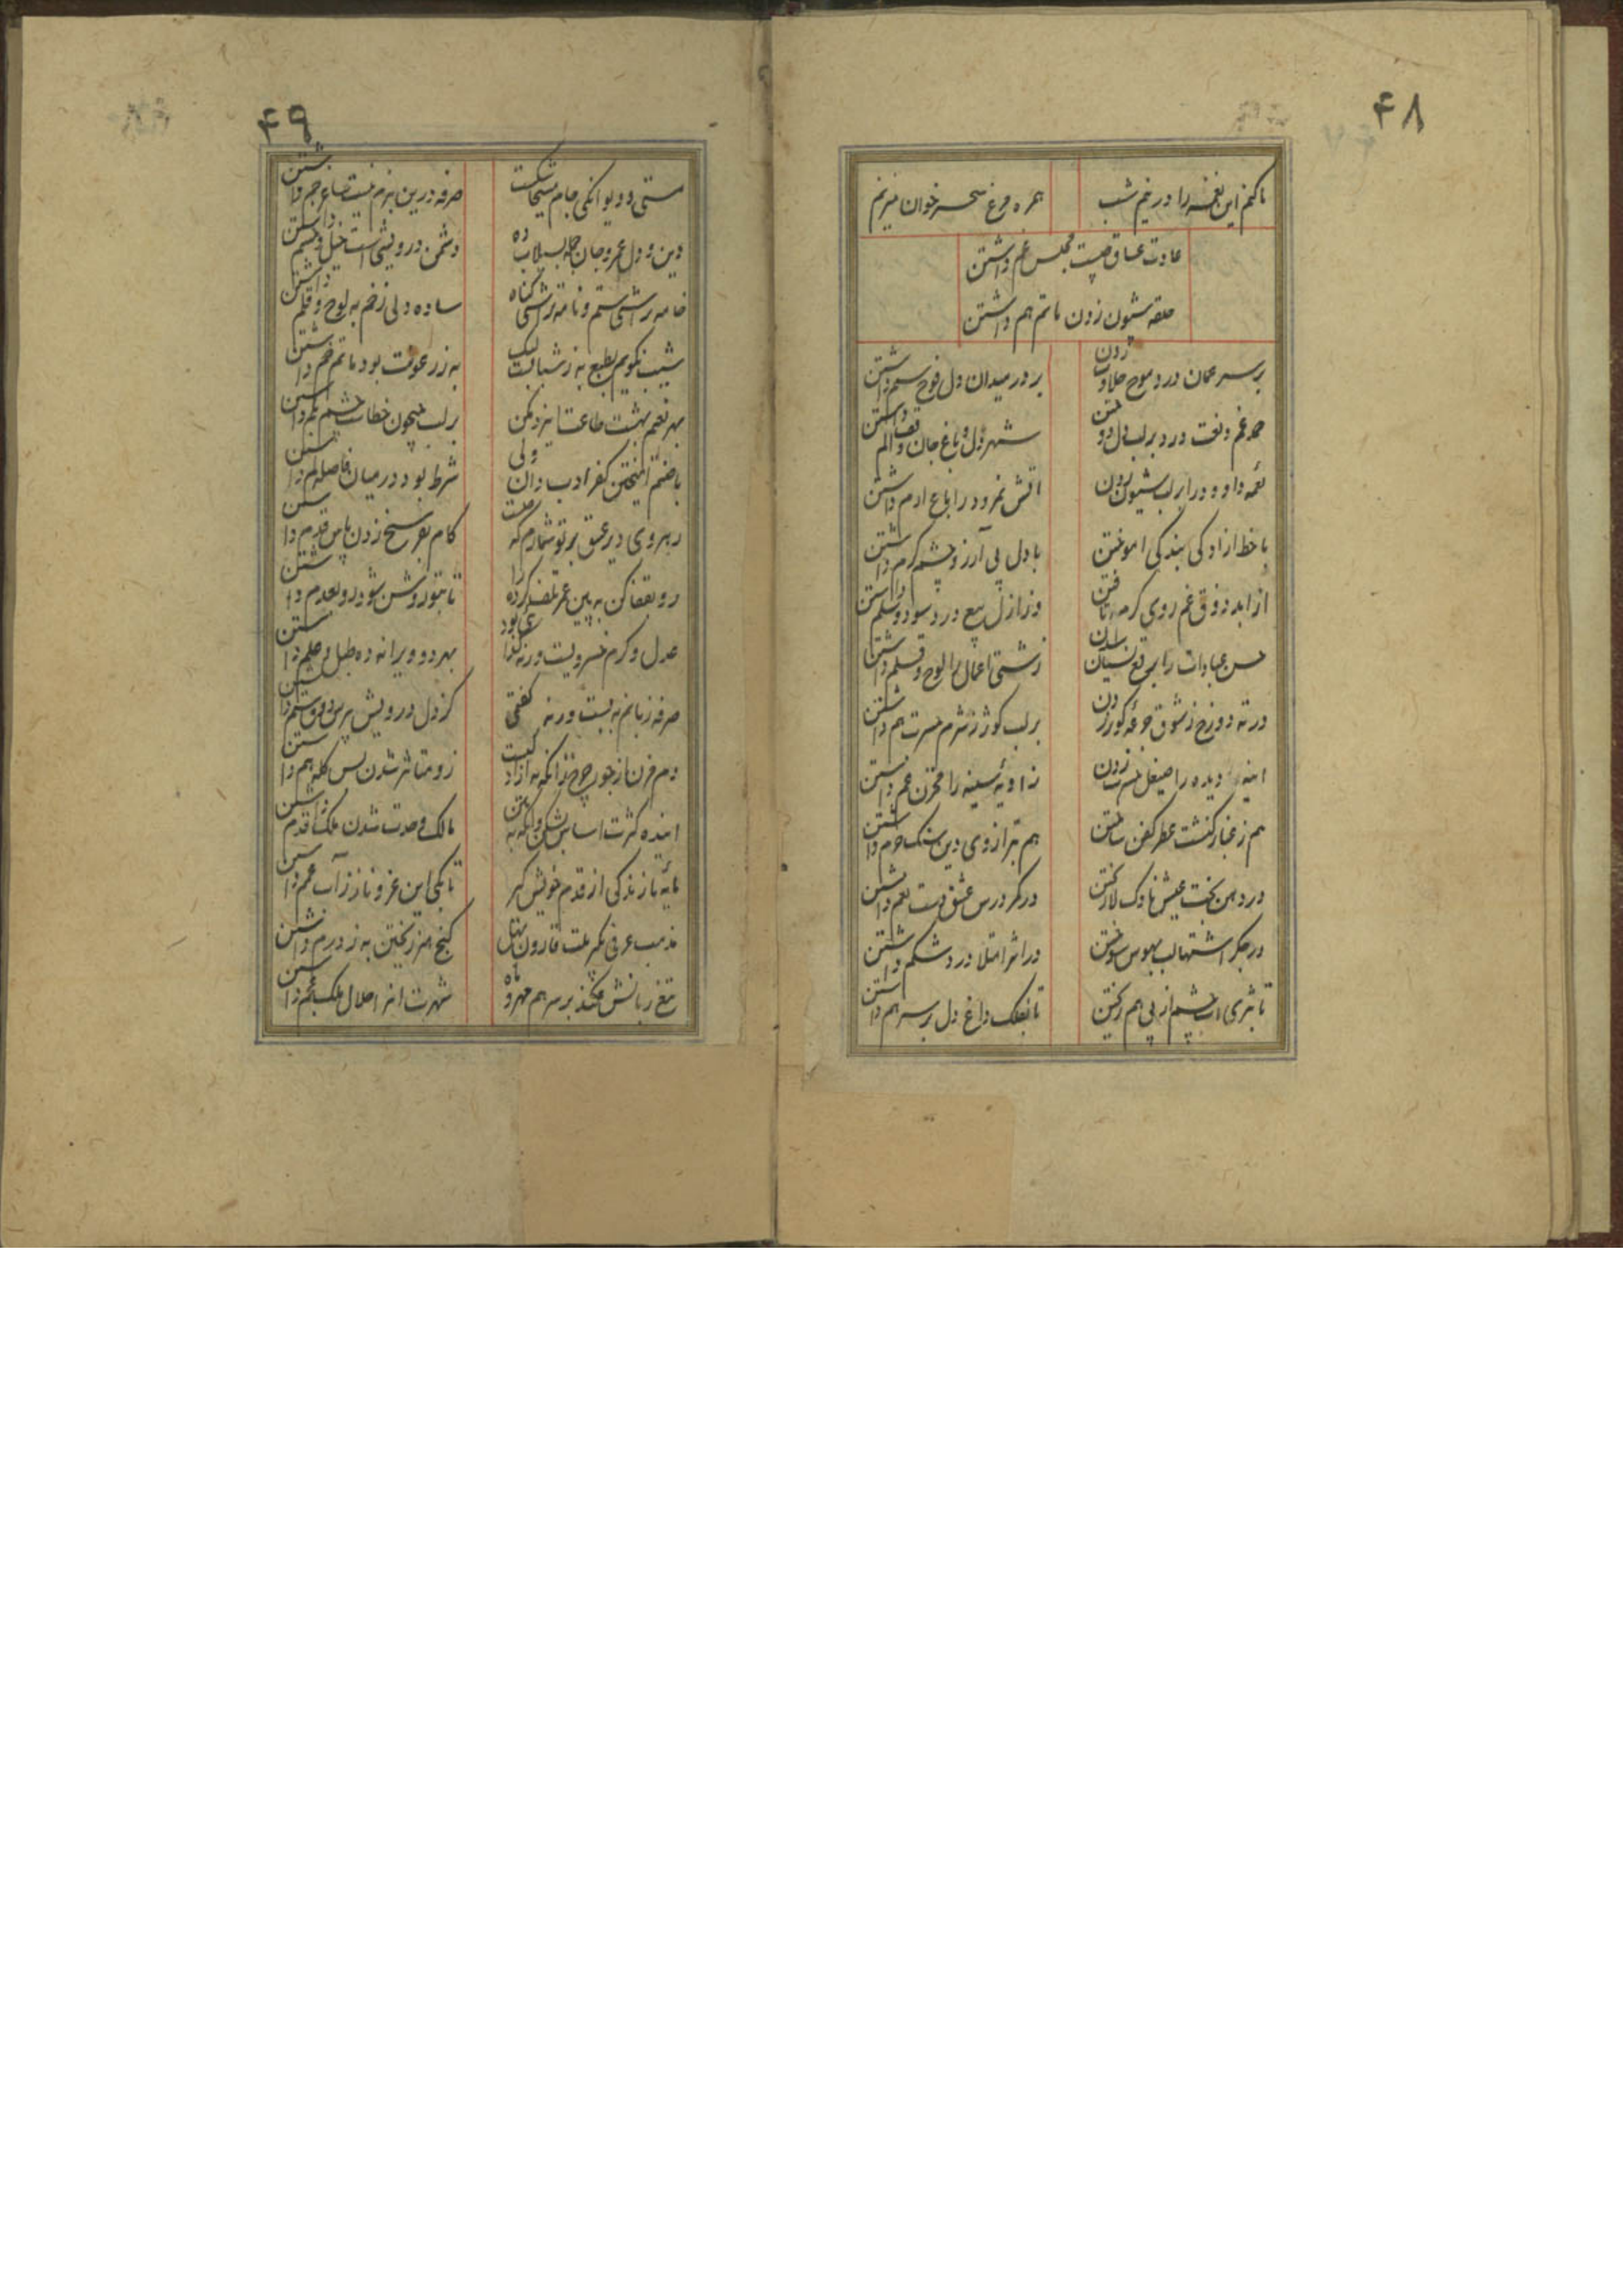 ۴۸
تا کنم این نغمه را در خم شب
همره مرغ سحر خوان میزنم
عادت عشاق چیست مجلس غم داشتن
حلقه شیون زدن ماتم هم داشتن
بر سر عمان درد موج حلاوت زدن
بر در میدان دل فوج ستم داشتن
حمد غم و نعت درد بر لب دل دوختن
شهر دل و باغ جان وقف الم داشتن
نغمه داود را بر لب شیون زدن
اتش نمرود را باغ ارم داشتن
با خط ازادکی بندکی اموختن
با دل بی آرزو چشم کرم داشتن
از ابد ذوق غم روی کرم تافتن
وز ازل بیع درد سود و سلم داشتن
حسن عبادات را نسیان
زشتی اعمال را لوح و قلم داشتن
در ته دوزخ ز شوق زدن
بر لب کوثر ز شرم حسرت هم داشتن
اینه دیده را صیقل زدن
زاویه سینه را مخزن غم داشتن
هم ز غبار کنشت عطر کفن ساختن
هم بترازوی دین سنک حرم داشتن
در دهن بخت عیش ناوک لا ریختن
در کمر درس عشق دست نعم داشتن
در جکر اشتها لب بهوس سوختن
در اثر امتلا درد شکم داشتن
تا بثری اب چشم از پی هم ریختن
تا بفلک داغ دل بر سر هم داشتن
۴۹
مستی و دیوانکی جام مسیحا شکست
صرفه درین بزم نیست ساغر جم داشتن
دین و دل عمر و جان جمله بسیلاب ده
دشمن درویشی است خیل و حشم داشتن
خامه تراشی ستم و نامه تراشی کناه
ساده دلی زخم به لوح و قلم داشتن
شیب نکویم بطبع به ز شبابت لیک
به ز رعونت بود ماتم خم داشتن
بهر نعیم بهشت طاعت ایزد مکن
بر لب جیحون خطاست چشم به نم داشتن
با صنم امیختن کفر ادب دان ولی
شرط بود در میان فاصله داشتن
رهروی دیر عشق بر تو شمارم که هست
کام بفرسخ زدن پاس قدم داشتن
رو بقفا کن به بین عمر تلف کرده را
تا بتو روشن شود رو بعدم داشتن
عدل و کرم خسرویست ورنه کدایی بود
بهر دو ویرانه ده طبل و علم داشتن
صرفه زبانم به بست ورنه کفتی
کز دل درویش پرس ذوق ستم داشتن
دم مزن از جور چرخ زانکه به ازاد کیست
زو متاثر شدن پس کله هم داشتن
اینده کثرت اساس بشکن وانکه به
مالک وحدت شدن ملک قدم داشتن
مایه تازندکی از قدم خویش کیر
تا بکی این عز و ناز ز آب عجم داشتن
مذهب عرفی نکر ملت قارون بهل
کنج هنر ریختن به ز درم داشتن
تیغ زبانش فکند بر سر هم مهر و ماه
شهرت اثر احلال ملک عجم داشتن